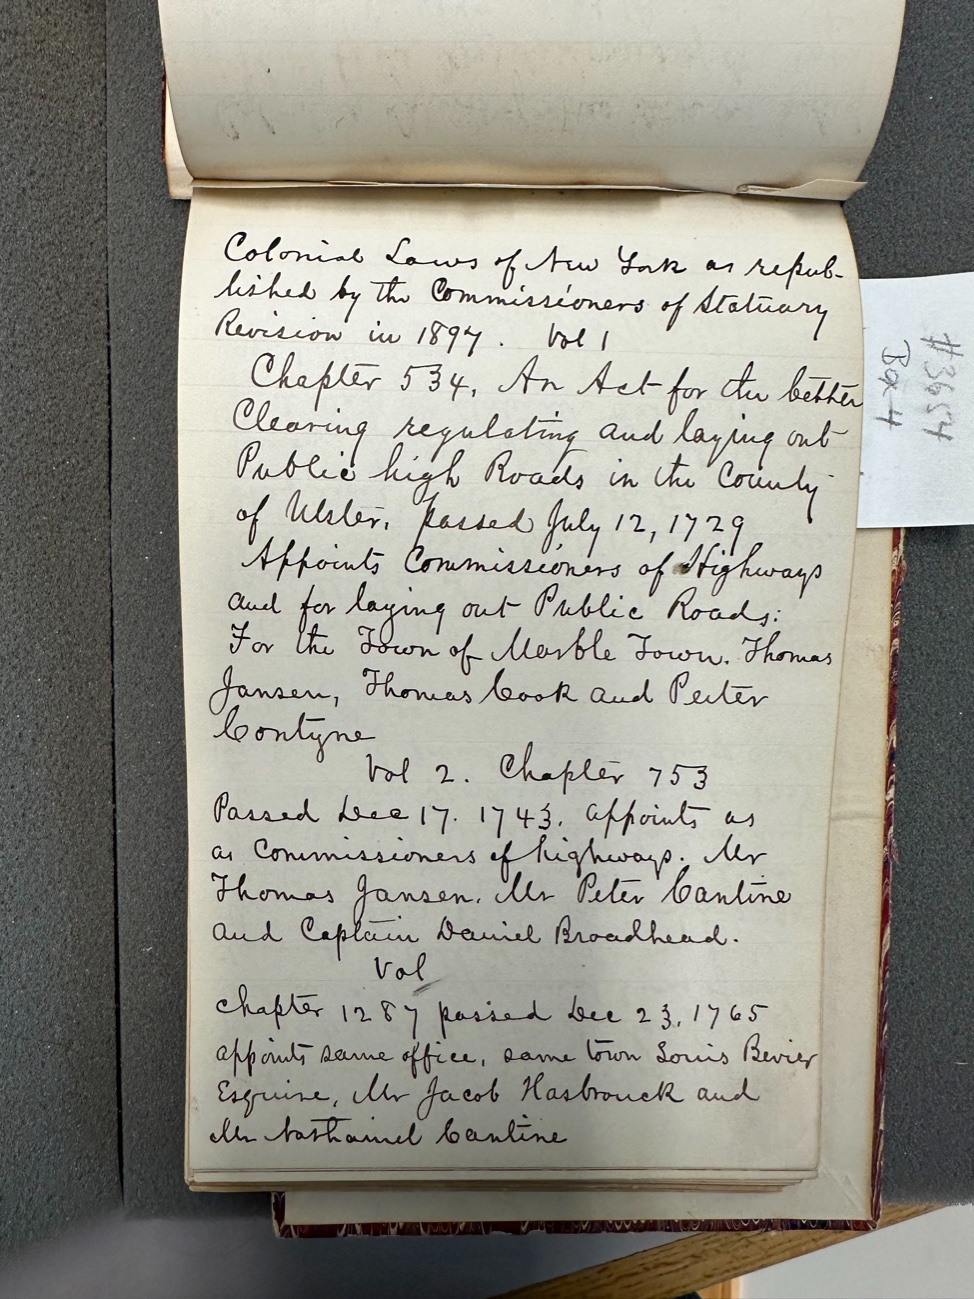 Colonial Laws of New York as repub-
lished by the Commissioners of Statuary
Revision in 1897. Vol 1
Chapter 534, An Act for the better
Clearing regulating and laying out
Public high Roads in the County
of Ulster, passed July 12, 1729
Appoints Commissioners of Highways
and for laying out Public Roads:
For the Town of Marble Town. Thomas
Jansen, Thomas Cook and Peiter
Contyne
Vol 2. Chapter 753
Passed Dec 17. 1743. appoints as
as Commissioners of highways. Mr
Thomas Jansen. Mr Peter Cantine
and Captain Daniel Broadhead.
Vol
Chapter 1287 passed Dec 23, 1765
appoints same office, same town Louis Bevier
Esquire, Mr Jacob Hasbrouck and
Mr Nathaniel Cantine
#3654
Box 4